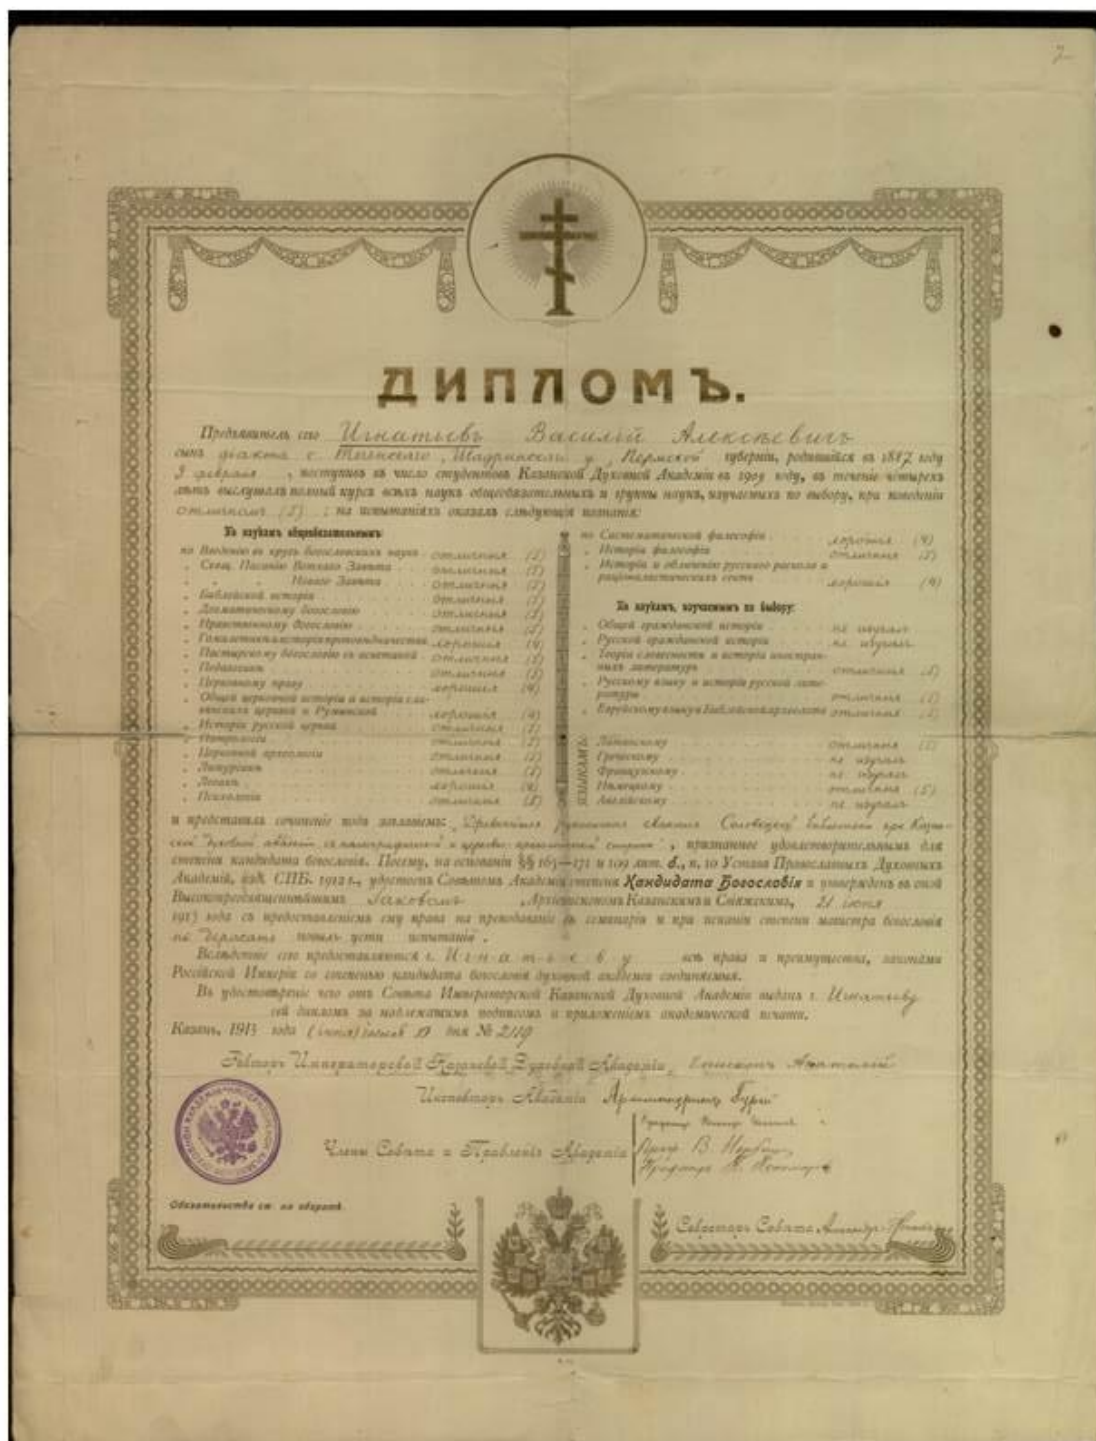 ДИПЛОМЪ.
Предъявитель сего Игнатьевъ Василій Алексѣевичъ
сынъ діакона с. Теченскаго, Шадринскаго у., Пермской губерніи, родившійся въ 1887 году
9 февраля, поступивъ въ число студентовъ Казанской Духовной Академіи въ 1909 году, въ теченіе четырехъ
лѣтъ выслушалъ полный курсъ всѣхъ наукъ общеобязательныхъ и группы наукъ, изучаемыхъ по выбору, при поведеніи
отличномъ (5); на испытаніяхъ оказалъ слѣдующія познанія:
По наукамъ общеобязательнымъ:
по Введенію въ кругъ богословскихъ наукъ отличныя (5)
„ Свящ. Писанію Ветхаго Завѣта отличныя (5)
„ „ Новаго Завѣта отличныя (5)
„ Библейской исторіи отличныя (5)
„ Догматическому богословію отличныя (5)
„ Нравственному богословію отличныя (5)
„ Гомилетикѣ и исторіи проповѣдничества хорошія (4)
„ Пастырскому богословію съ аскетикой отличныя (5)
„ Педагогикѣ отличныя (5)
„ Церковному праву хорошія (4)
„ Общей церковной исторіи и исторіи сла-
вянскихъ церквей и Румынской хорошія (4)
„ Исторіи русской церкви отличныя (5)
„ Патрологіи отличныя (5)
„ Церковной археологіи отличныя (5)
„ Литургикѣ отличныя (5)
„ Логикѣ хорошія (4)
„ Психологіи отличныя (5)
по Систематической философіи хорошія (4)
„ Исторіи философіи отличныя (5)
„ Исторіи и обличенію русскаго раскола и
раціоналистическихъ сектъ хорошія (4)
По наукамъ, изучаемымъ по выбору:
„ Общей гражданской исторіи не изучалъ
„ Русской гражданской исторіи не изучалъ
„ Теоріи словесности и исторіи иностран-
ныхъ литературъ отличныя (5)
„ Русскому языку и исторіи русской лите-
ратуры отличныя (5)
„ Еврейскому языку и Библейской археологіи отличныя (5)
ЯЗЫКАМЪ:
Латинскому отличныя (5)
Греческому не изучалъ
Французскому не изучалъ
Нѣмецкому отличныя (5)
Англійскому не изучалъ
и представилъ сочиненіе подъ заглавіемъ: Соловецкой библіотеки при Казан-
ской духовной академіи съ палеографической и церковно-археологической стороны“, признанное удовлетворительнымъ для
степени кандидата богословія. Посему, на основаніи §§ 165—171 и 109 лит. б., п. 10 Устава Православныхъ Духовныхъ
Академій, изд. СПБ. 1912 г., удостоенъ Совѣтомъ Академіи степени Кандидата Богословія и утвержденъ въ оной
Высокопреосвященнѣйшимъ Іаковомъ, Архіепископомъ Казанскимъ и Свіяжскимъ, 21 іюня
1913 года съ предоставленіемъ ему права на преподаваніе въ семинаріи и при исканіи степени магистра богословія
не держать новыхъ устн испытаній.
Вслѣдствіе сего предоставляются г. Игнатьеву всѣ права и преимущества, законами
Россійской Имперіи со степенью кандидата богословія духовной академіи соединяемыя.
Въ удостовѣреніе чего отъ Совѣта Императорской Казанской Духовной Академіи выданъ г. Игнатьеву
сей дипломъ за надлежащимъ подписомъ и приложеніемъ академической печати.
Казань, 1913 года дня № 2119
Ректоръ Императорской Казанской Духовной Академіи, Епископъ Анатолій
Инспекторъ Академіи Архимандритъ Гурій
Члены Совѣта и Правленія Академіи
Секретарь Совѣта
Обязательства см. на оборотѣ.